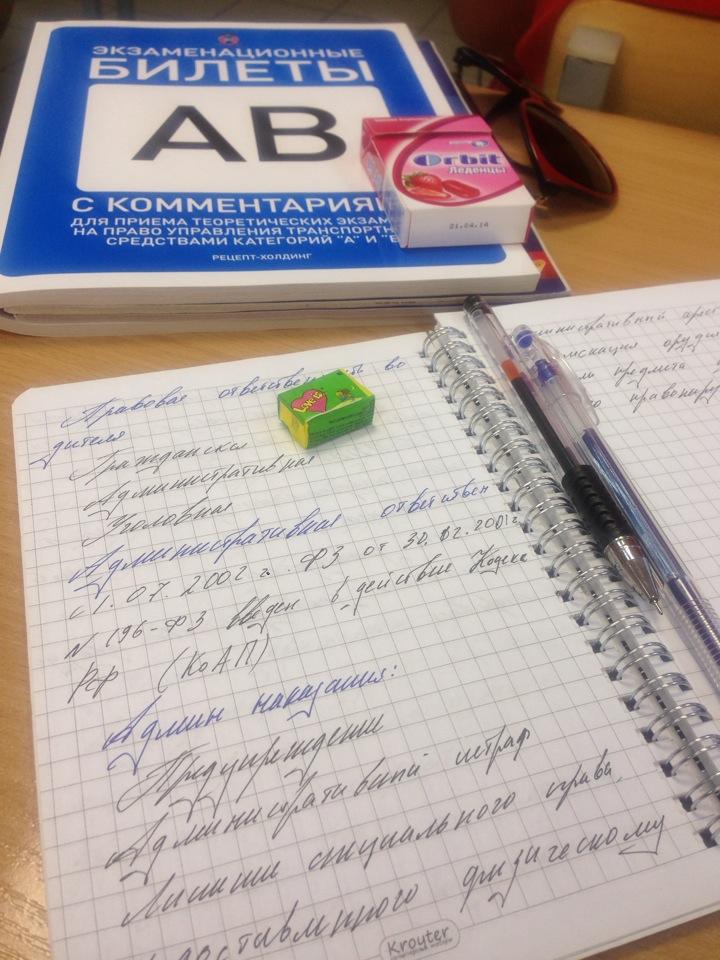 ЭКЗАМЕНАЦИОННЫЕ
БИЛЕТЫ
АВ
С КОММЕНТАРИЯ
ДЛЯ ПРИЕМА ТЕОРЕТИЧЕСКИХ ЭКЗАМ
НА ПРАВО УПРАВЛЕНИЯ ТРАНСПОРТН
СРЕДСТВАМИ КАТЕГОРИЙ "А" И "
РЕЦЕПТ-ХОЛДИНГ
Orbit
Леденцы
21.04.14
Love is
Правовая ответственность во
дителя
Гражданская
Административная
Уголовная
Административная ответствен
с 1.07.2002 г. ФЗ от 30.12.2001г
N 196-ФЗ введен в действие Кодекс
РФ (КоАП)
Админ наказания:
Предупреждение
Административный штраф
Лишение специального права,
физическому
министративный арес
предмета
правонару
Kroyter